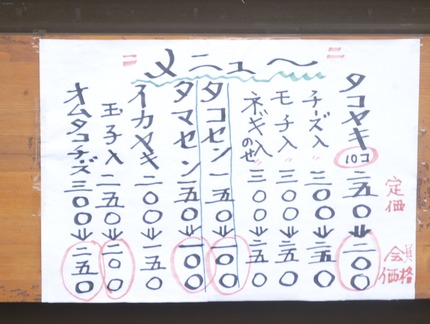 メニュー
定価
会員価格
タコヤキ 10コ 二五〇⇓二〇〇
チーズ入〃 三〇〇⇓二五〇
モチ入〃 三〇〇⇓二五〇
ネギ入〃のせ 三〇〇⇓二五〇
タコセン 一五〇⇓一〇〇
タマセン 一五〇⇓一〇〇
イカヤキ 二〇〇⇓一五〇
玉子入 二五〇⇓二〇〇
オムタコチーズ 三〇〇⇓二五〇